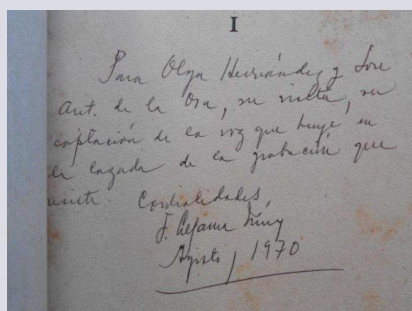 I
Para Olga Hernández y José
Ant. de la Ora, su visita, su
captación de la voz que huye en
la cazada de la grabación que
Cordialidades,
J. Lezama Lima
Agosto, 1970